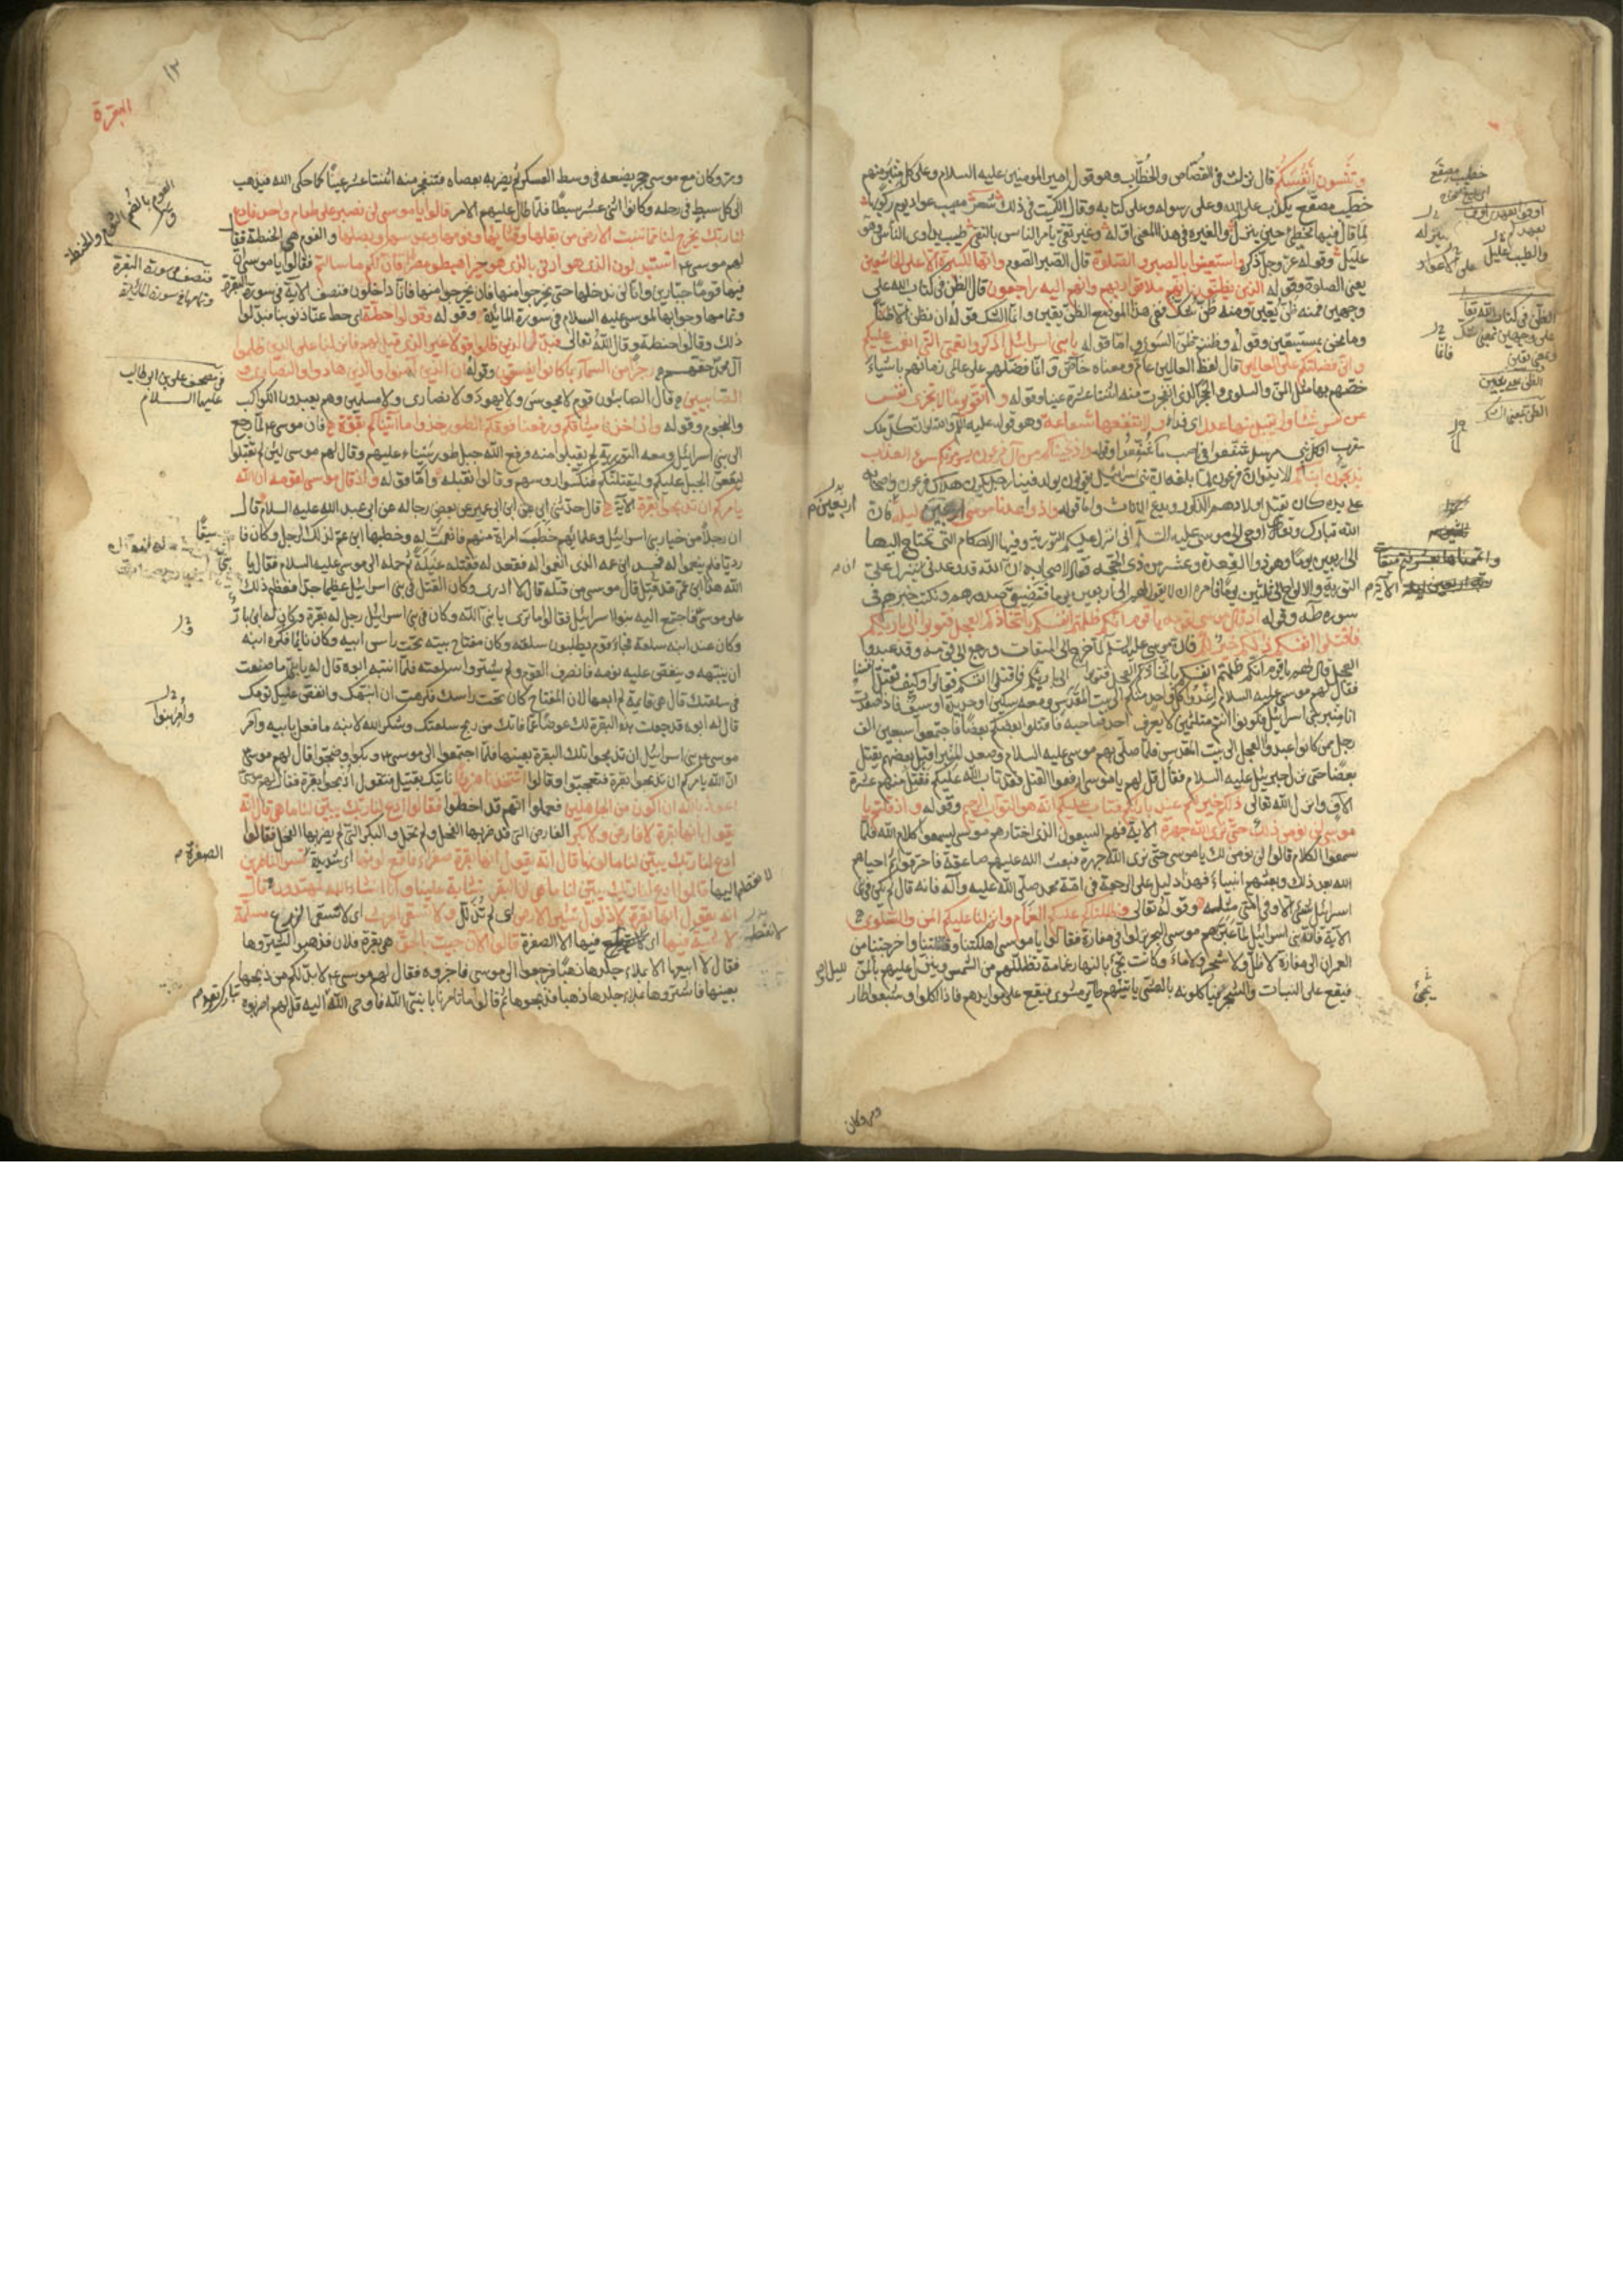 وتنسون أنفسكم قال نزلت في القصاص والخطاب وهو قول امير المومنين عليه السلام وعلى كل منبر منهم
خطيب مصقع يكذب على الله وعلى رسوله وعلى كتابه وقال الكميت في ذلك شعر مصيب على الاعواد يوم ركوبها
لما قال فيها مخطئ حين ينزل ولغيره في هذا المعنى وغير تقي يامر الناس بالتقى طبيب يداوي الناس وهو
عليل وقوله عز وجل ذكره واستعينوا بالصبر والصلوة قال الصبر الصوم وانها لكبيرة الا على الخاشعين
يعني الصلوة وقوله الذين يظنون انهم ملاقوا ربهم وانهم اليه راجعون قال الظن في كتاب الله على
وجهين فمنه ظن يقين ومنه ظن شك ففي هذا الموضع الظن يقين وانما الشك قوله ان نظن الا ظنا
وما نحن بمستيقنين وقوله وظننتم ظن السوء واما قوله يا بني اسرائيل اذكروا نعمتي التي انعمت عليكم
واني فضلتكم على العالمين قال لفظ العالمين عام ومعناه خاص وانما فضلهم على عالمي زمانهم باشياء
خصهم بها مثل المن والسلوى والحجر الذي انفجرت منه اثنتا عشرة عينا وقوله واتقوا يوما لا تجزى نفس
عن نفس شيئا ولا يقبل منها عدل اي فداء ولا تنفعها شفاعة وهو قوله عليه الام والله لو ان كل ملك
مقرب او كل نبي مرسل شفعوا في ناصب ما شفعوا وقوله واذ نجيناكم من آل فرعون يسومونكم سوء العذاب
يذبحون ابناءكم الاية وان فرعون لما بلغه ان بني اسرائيل يقولون يولد فينا رجل يكون هلاك فرعون واصحابه
على يده كان يقتل اولادهم الذكور ويدع الاناث واما قوله واذ واعدنا موسى اربعين ليلة فان
الله تبارك وتعالى اوحى الى موسى عليه السلم اني انزل عليكم التورية وفيها الاحكام التي تحتاج اليها
الى اربعين يوما وهو ذو القعدة وعشر من ذي الحجة فقال لاصحابه ان الله قد وعدني ينزل علي
التورية والالواح الى ثلثين يوما فامره الله ان لا يقول لهم الى اربعين يوما فتضيق صدورهم ونكتب خبرهم في
سورة طه وقوله اذ قال موسى لقومه يا قوم انكم ظلمتم انفسكم باتخاذكم العجل فتوبوا الى بارئكم
فاقتلوا انفسكم ذلكم خير لكم فان موسى عليه السلم لما خرج الى الميقات ورجع الى قومه وقد عبدوا
العجل قال لهم يا قوم انكم ظلمتم انفسكم باتخاذكم العجل فتوبوا الى بارئكم فاقتلوا انفسكم فقالوا وكيف نقتل انفسنا
فقال لهم موسى عليه السلام اغدوا كل واحد منكم الى بيت المقدس ومعه سكين او حديدة او سيف فاذا صعدت
انا منبر بني اسرائيل فكونوا انتم متلثمين لا يعرف احد صاحبه فاقتلوا بعضكم بعضا فاجتمعوا سبعين الف
رجل من كانوا عبدوا العجل الى بيت المقدس فلما صلى بهم موسى عليه السلام وصعد المنبر اقبل بعضهم يقتل
بعضا حتى نزل جبرئيل عليه السلام فقال قل لهم يا موسى ارفعوا القتل فقد تاب الله عليكم فقتل منهم عشرة
الآف وانزل الله تعالى ذلكم خير لكم عند بارئكم فتاب عليكم انه هو التواب الرحيم وقوله واذ قلتم يا
موسى لن نؤمن لك حتى نرى الله جهرة الاية فهم السبعون الذي اختارهم موسى ليسمعوا كلام الله فلما
سمعوا الكلام قالوا لن نومن لك يا موسى حتى نرى الله جهرة فبعث الله عليهم صاعقة فاحترقوا ثم احياهم
الله بعد ذلك وبعثهم انبياء فهذا دليل على الرجعة في امة محمد صلى الله عليه وآله فانه قال لم يكن في بني
اسرائيل شيء الا وفي امتي مثله وقوله تعالى وظللنا عليكم الغمام وانزلنا عليكم المن والسلوى
الآية فان بني اسرائيل لما عبر بهم موسى البحر نزلوا في مفازة فقالوا يا موسى اهلكتنا وقتلتنا واخرجتنا من
العمران الى مفازة لا ظل ولا شجر ولا ماء وكانت تجئ بالنهار غمامة تظللهم من الشمس وينزل عليهم بالليل المن
فيقع على النبات والشجر فياكلونه بالعشي ياتيهم طاير مشوي فيقع على موايدهم فاذا اكلوا وشبعوا طار
خطيب مصقع
والطبيب عليل
على الاعواد
الظن في كتاب الله تعا
على وجهين
الظن بمعنى الشك
اربعين
واتممناها بعشر فتم ميقات
يجئ
ومر وكان
١٣
البقرة
ومر وكان مع موسى حجر يضعه في وسط العسكر ثم يضربه بعصاه فتنفجر منه اثنتا عشر عينا كما حكى الله فيذهب
الى كل سبط في رحله وكانوا اثني عشر سبطا فلما طال عليهم الامر قالوا يا موسى لن نصبر على طعام واحد فادع
لنا ربك يخرج لنا مما تنبت الارض من بقلها وقثايها وفومها وعدسها وبصلها والفوم هي الحنطة فقا
لهم موسى ع اتستبدلون الذي هو ادنى بالذي هو خير اهبطوا مصرا فان لكم ما سالتم فقالوا يا موسى ان
فيها قوما جبارين وانا لن ندخلها حتى يخرجوا منها فان يخرجوا منها فانا داخلون فنصف الاية في سورة البقرة
وتمامها وجوابها لموسى عليه السلام في سورة المائدة وقوله وقولوا حطة اي حط عنا ذنوبنا فبدلوا
ذلك وقالوا حنطة وقال الله تعالى فبدل الذين ظلموا قولا غير الذي قيل لهم فانزلنا على الذين ظلموا
آل محمد حقهم رجزا من السماء بما كانوا يفسقون وقوله ان الذين آمنوا والذين هادوا والنصارى و
الصابئين قال الصابئون قوم لا مجوسى ولا يهود ولا نصارى ولا مسلمين وهم يعبدون الكواكب
والنجوم وقوله واذ اخذنا ميثاقكم ورفعنا فوقكم الطور خذوا ما آتيناكم بقوة فان موسى ع لما رجع
الى بني اسرائيل ومعه التورية لم يقبلوا منه فرفع الله جبل طور سيناء عليهم وقال لهم موسى لئن لم تقبلوا
ليقعن الجبل عليكم وليقتلنكم فنكسوا روسهم وقالوا نقبله واما قوله واذ قال موسى لقومه ان الله
يامركم ان تذبحوا بقرة الآية قال حدثني ابي عن ابن ابي عمير عن بعض رجاله عن ابي عبد الله عليه السلام قال
ان رجلا من خيار بني اسرائيل وعلمائهم خطب امراة منهم فانعمت له وخطبها ابن عم لذلك الرجل وكان فا
رديا فلم ينعموا له فحسد ابن عمه الذي انعموا له فقعد له فقتله غيلة ثم حمله الى موسى عليه السلام فقال يا
الله هذا ابن عمي قد قتل قال موسى من قتله قال لا ادري وكان القتل في بني اسرائيل عظيما جدا فعظم ذلك
على موسى فاجتمع اليه بنوا اسرائيل فقالوا ما ترى يا نبي الله وكان في بني اسرائيل رجل له بقرة وكان له ابن بار
وكان عند ابنه سلعة فجاء قوم يطلبون سلعته وكان مفتاح بيته تحت راس ابيه وكان نائما فكره ابنه
ان ينبهه وينغص عليه نومه فانصرف القوم ولم يشتروا سلعته فلما انتبه ابوه قال له يا بني ما صنعت
في سلعتك قال هي قايمة لم ابعها لان المفتاح كان تحت راسك فكرهت ان انبهك وانغص عليك نومك
قال له ابوه قد جعلت هذه البقرة لك عوضا عما فاتك من ربح سلعتك وشكر الله لابنه ما فعل بابيه وامر
موسى ع بني اسرائيل ان تذبحوا تلك البقرة بعينها فلما اجتمعوا الى موسى ع وبكوا وضجوا قال لهم موسى
ان الله يامركم ان تذبحوا بقرة فتعجبوا وقالوا اتتخذنا هزوا ناتيك بقتيل فتقول اذبحوا بقرة فقال لهم موسى
اعوذ بالله ان اكون من الجاهلين فعلموا انهم قد اخطوا فقالوا ادع لنا ربك يبين لنا ما هي قال انه
يقول انها بقرة لا فارض ولا بكر الفارض التي قد ضربها الفحل ولم تحمل والبكر التي لم يضربها الفحل فقالوا
ادع لنا ربك يبين لنا ما لونها قال انه يقول انها بقرة صفراء فاقع لونها اي شديدة تسر الناظرين
اليها قالوا ادع لنا ربك يبين لنا ما هي ان البقر تشابه علينا وانا انشاء الله لمهتدون قال
انه يقول انها بقرة لا ذلول تثير الارض اي لم تذلل ولا تسقي الحرث اي لا تسقى الزرع مسلمة
لا شية فيها اي لا نقط فيها الا الصفرة قالوا الآن جيت بالحق هي بقرة فلان فذهبوا ليشتروها
فقال لا ابيعها الا بملاء جلدها ذهبا فرجعوا الى موسى فاخبروه فقال لهم موسى ع لابد لكم من ذبحها
بعينها فاشتروها بملاء جلدها ذهبا فذبحوها ثم قالوا ما تامرنا يا نبي الله فاوحى الله اليه قل لهم اضربوه
الفوم بالضم الثوم والحنطة
فنصف في سورة البقرة
وتمامها في سورة المائدة
في مصحف علي بن ابي طالب
عليهما السلام
الصفرة